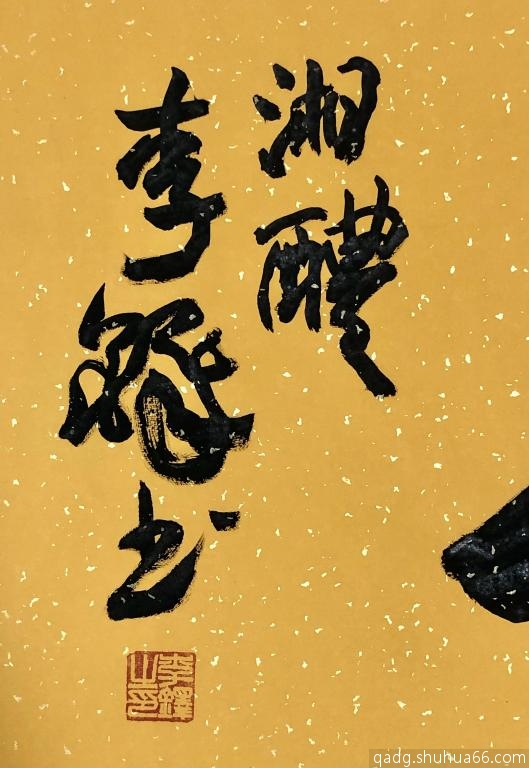 湘醴
李鐸书
李鐸之印
qadg.shuhua66.com